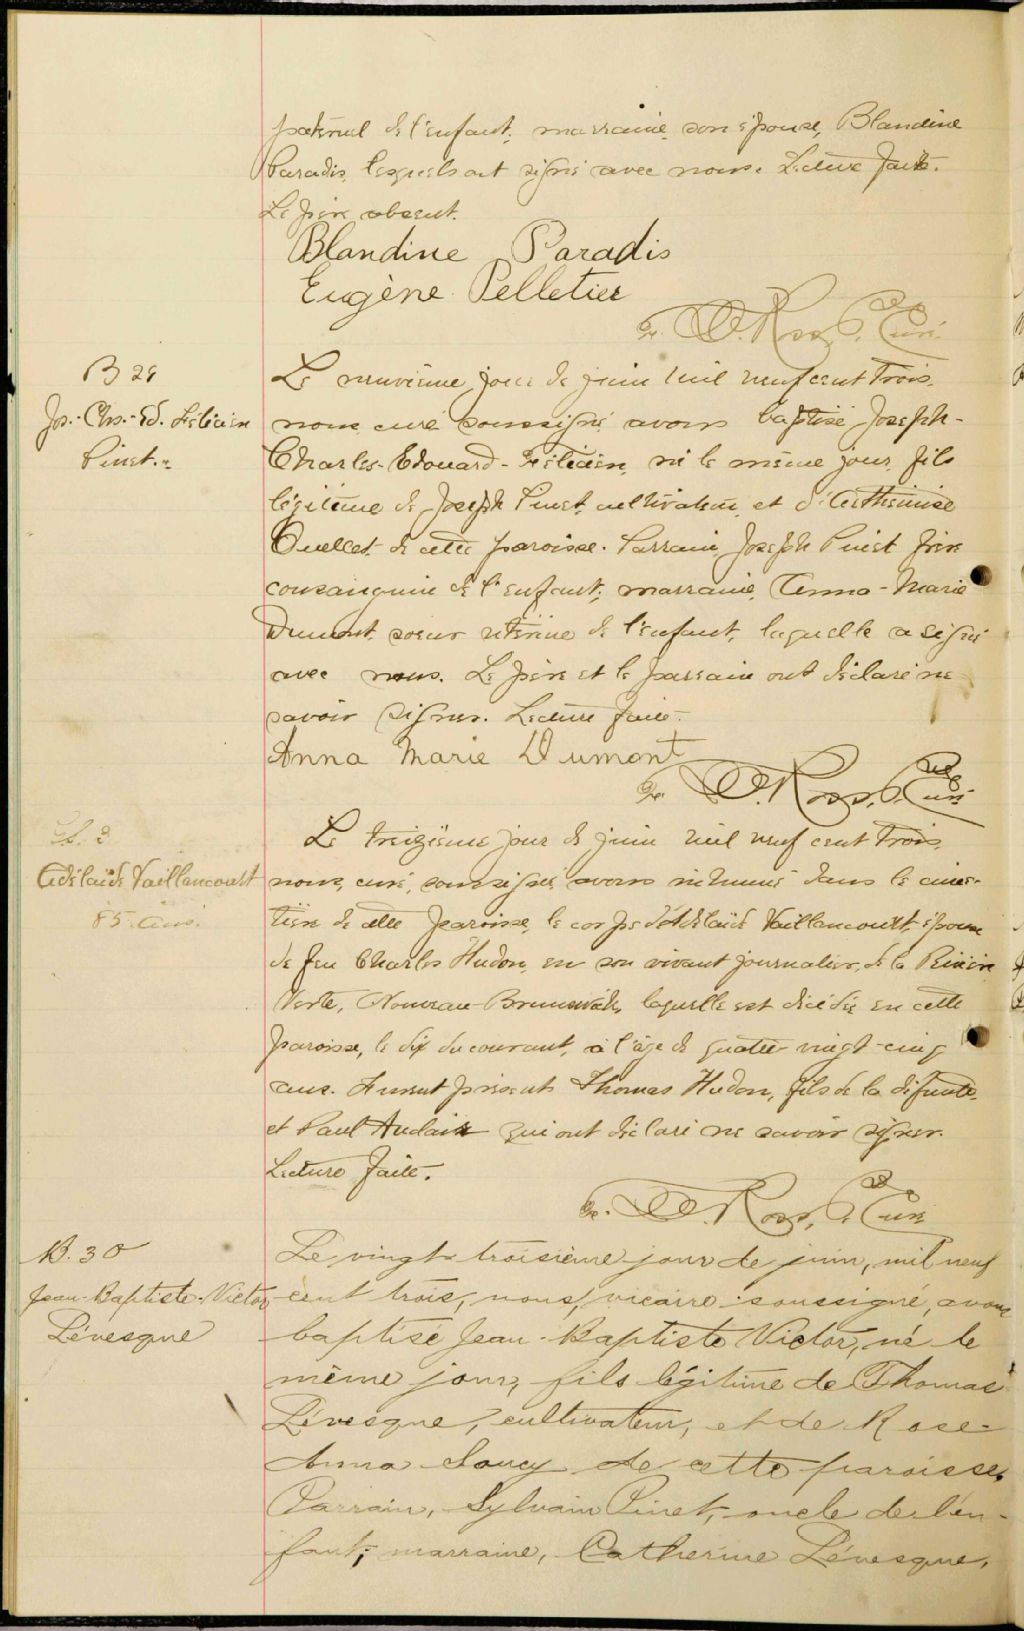 paternel de l'enfant; marraine, son épouse, Blandine
Paradis, lesquels ont signé avec nous. Lecture faite.
Le père absent.
Blandine Paradis
Eugène Pelletier
D. Ross, P. Curé
B 29
Jos.-Chs.-Ed. Félicien
Pinet.
Le neuvième jour de juin mil neuf cent trois,
nous curé soussigné avons baptisé Joseph-
Charles-Edouard-Félicien, né le même jour, fils
légitime de Joseph Pinet, cultivateur, et d'Arthémise
Ouellet de cette paroisse. Parrain, Joseph Pinet frère
consanguin de l'enfant; marraine, Anna-Marie
Dumont, soeur utérine de l'enfant, laquelle a signé
avec nous. Le père et le parrain ont déclaré ne
savoir signer. Lecture faite.
Anna Marie Dumont
D. Ross, P. Curé
S. 3
Adélaïde Vaillancourt
85 ans.
Le treizième jour de juin mil neuf cent trois,
nous, curé, soussigné, avons inhumé dans le cime-
tière de cette paroisse, le corps d'Adélaïde Vaillancourt, épouse
de feu Charles Hudon, en son vivant journalier, de la Rivière
Verte, Nouveau-Brunswick, laquelle est décédée en cette
paroisse, le dix du courant, à l'âge de quatre-vingt-cinq
ans. Furent présents Thomas Hudon, fils de la défunte,
et Paul Audair qui ont déclaré ne savoir signer.
Lecture faite.
D. Ross, P. Curé
B. 30
Jean-Baptiste-Victor
Lévesque
Le vingt-troisième jour de juin, mil neuf
cent trois, nous, vicaire soussigné, avons
baptisé Jean-Baptiste Victor, né le
même jour, fils légitime de Thomas
Lévesque, cultivateur, et de Rose-
Anna Soucy de cette paroisse.
Parrain, Sylvain Pinet, oncle de l'en-
fant; marraine, Catherine Lévesque,